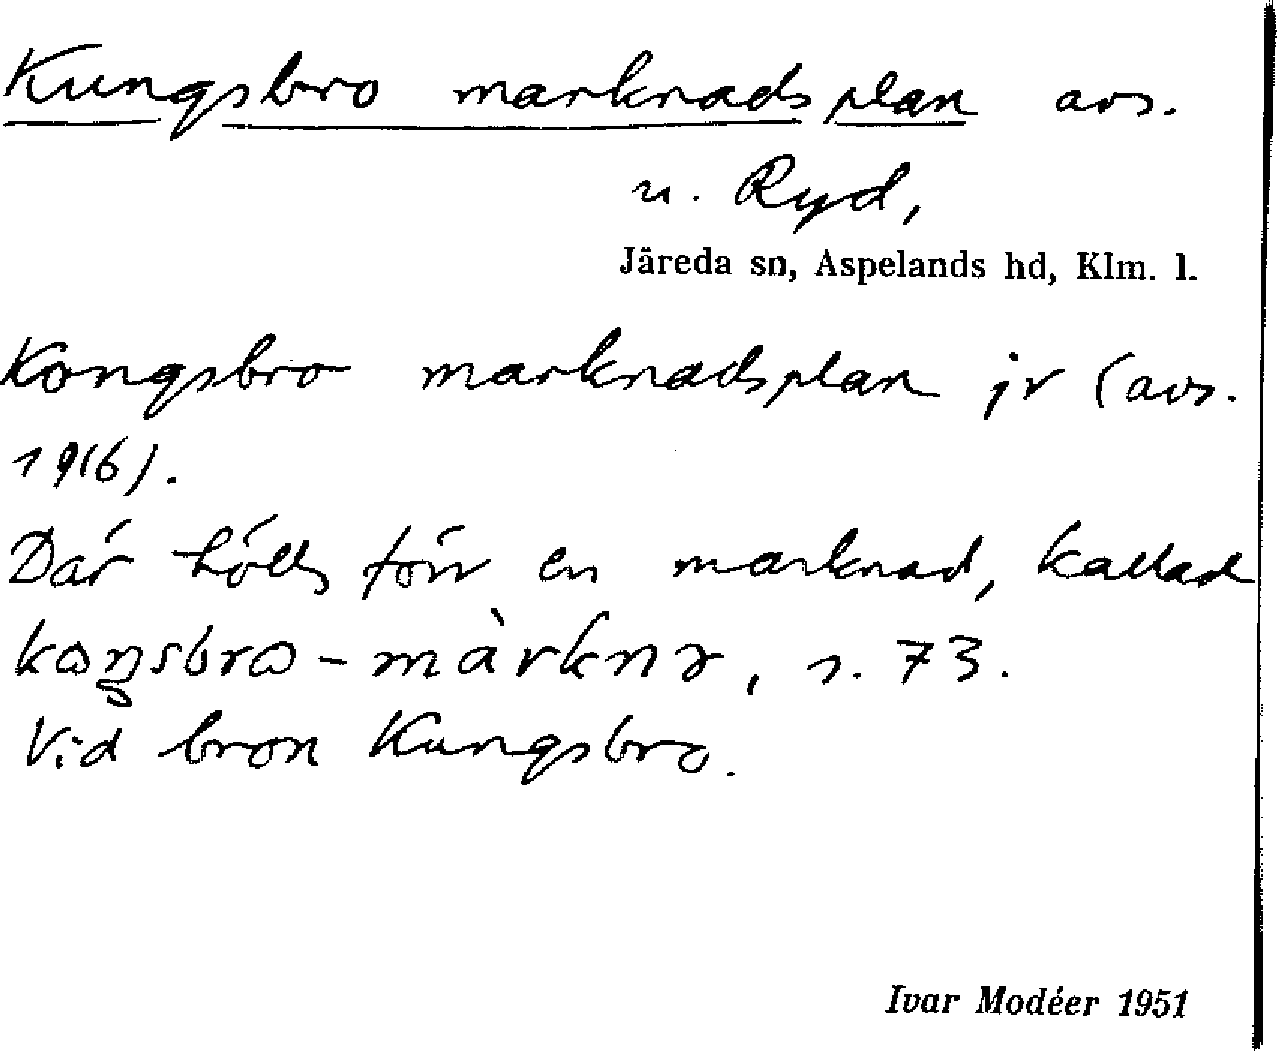 Kungsbro marknadsplan avs.
u. Ryd,
Järeda sn, Aspelands hd, Klm. l.
Kongsbro marknadsplan jr (avs.
1916).
Där hölls förr en marknad, kallad
kɷŋsbrɷ-màrknɤ, s. 73.
Vid bron Kungsbro.
Ivar Modéer 1951